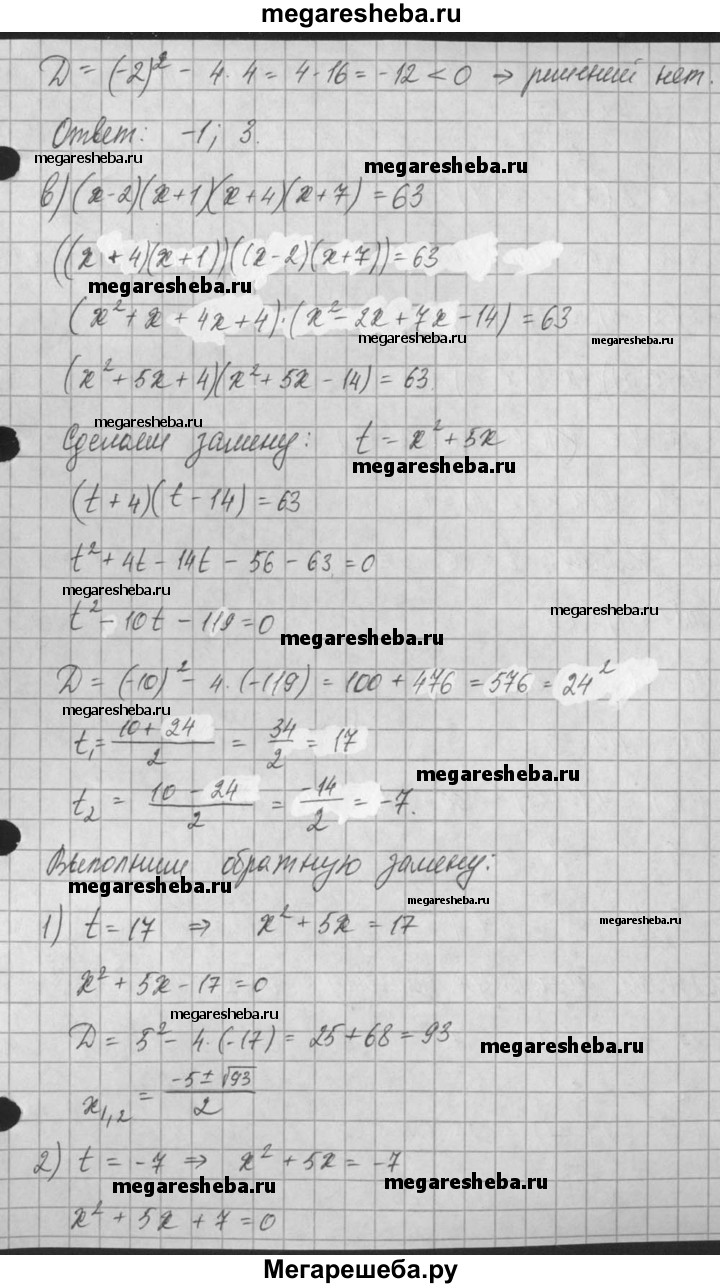 megaresheba.ru
D = (-2)² - 4·4 = 4-16 = -12 < 0 → решений нет.
Ответ: -1; 3.
megaresheba.ru
megaresheba.ru
в) (x-2)(x+1)(x+4)(x+7) = 63
((x+4)(x+1))((x-2)(x+7)) = 63
megaresheba.ru
(x²+x+4x+4)·(x²-2x+7x-14) = 63
megaresheba.ru
megaresheba.ru
(x²+5x+4)(x²+5x-14) = 63
megaresheba.ru
Сделаем замену: t = x²+5x
megaresheba.ru
(t+4)(t-14) = 63
t²+4t-14t-56-63 = 0
megaresheba.ru
megaresheba.ru
t²-10t-119 = 0
megaresheba.ru
D = (-10)² - 4·(-119) = 100 + 476 = 576 = 24²
megaresheba.ru
t₁ = (10+24)/2 = 34/2 = 17
megaresheba.ru
t₂ = (10-24)/2 = -14/2 = -7.
Выполним обратную замену:
megaresheba.ru
megaresheba.ru
megaresheba.ru
1) t = 17 ⇒ x²+5x = 17
x²+5x-17 = 0
megaresheba.ru
D = 5² - 4·(-17) = 25+68 = 93
megaresheba.ru
x₁,₂ = (-5±√93)/2
2) t = -7 ⇒ x²+5x = -7
megaresheba.ru
megaresheba.ru
x²+5x+7 = 0
Мегарешеба.ру